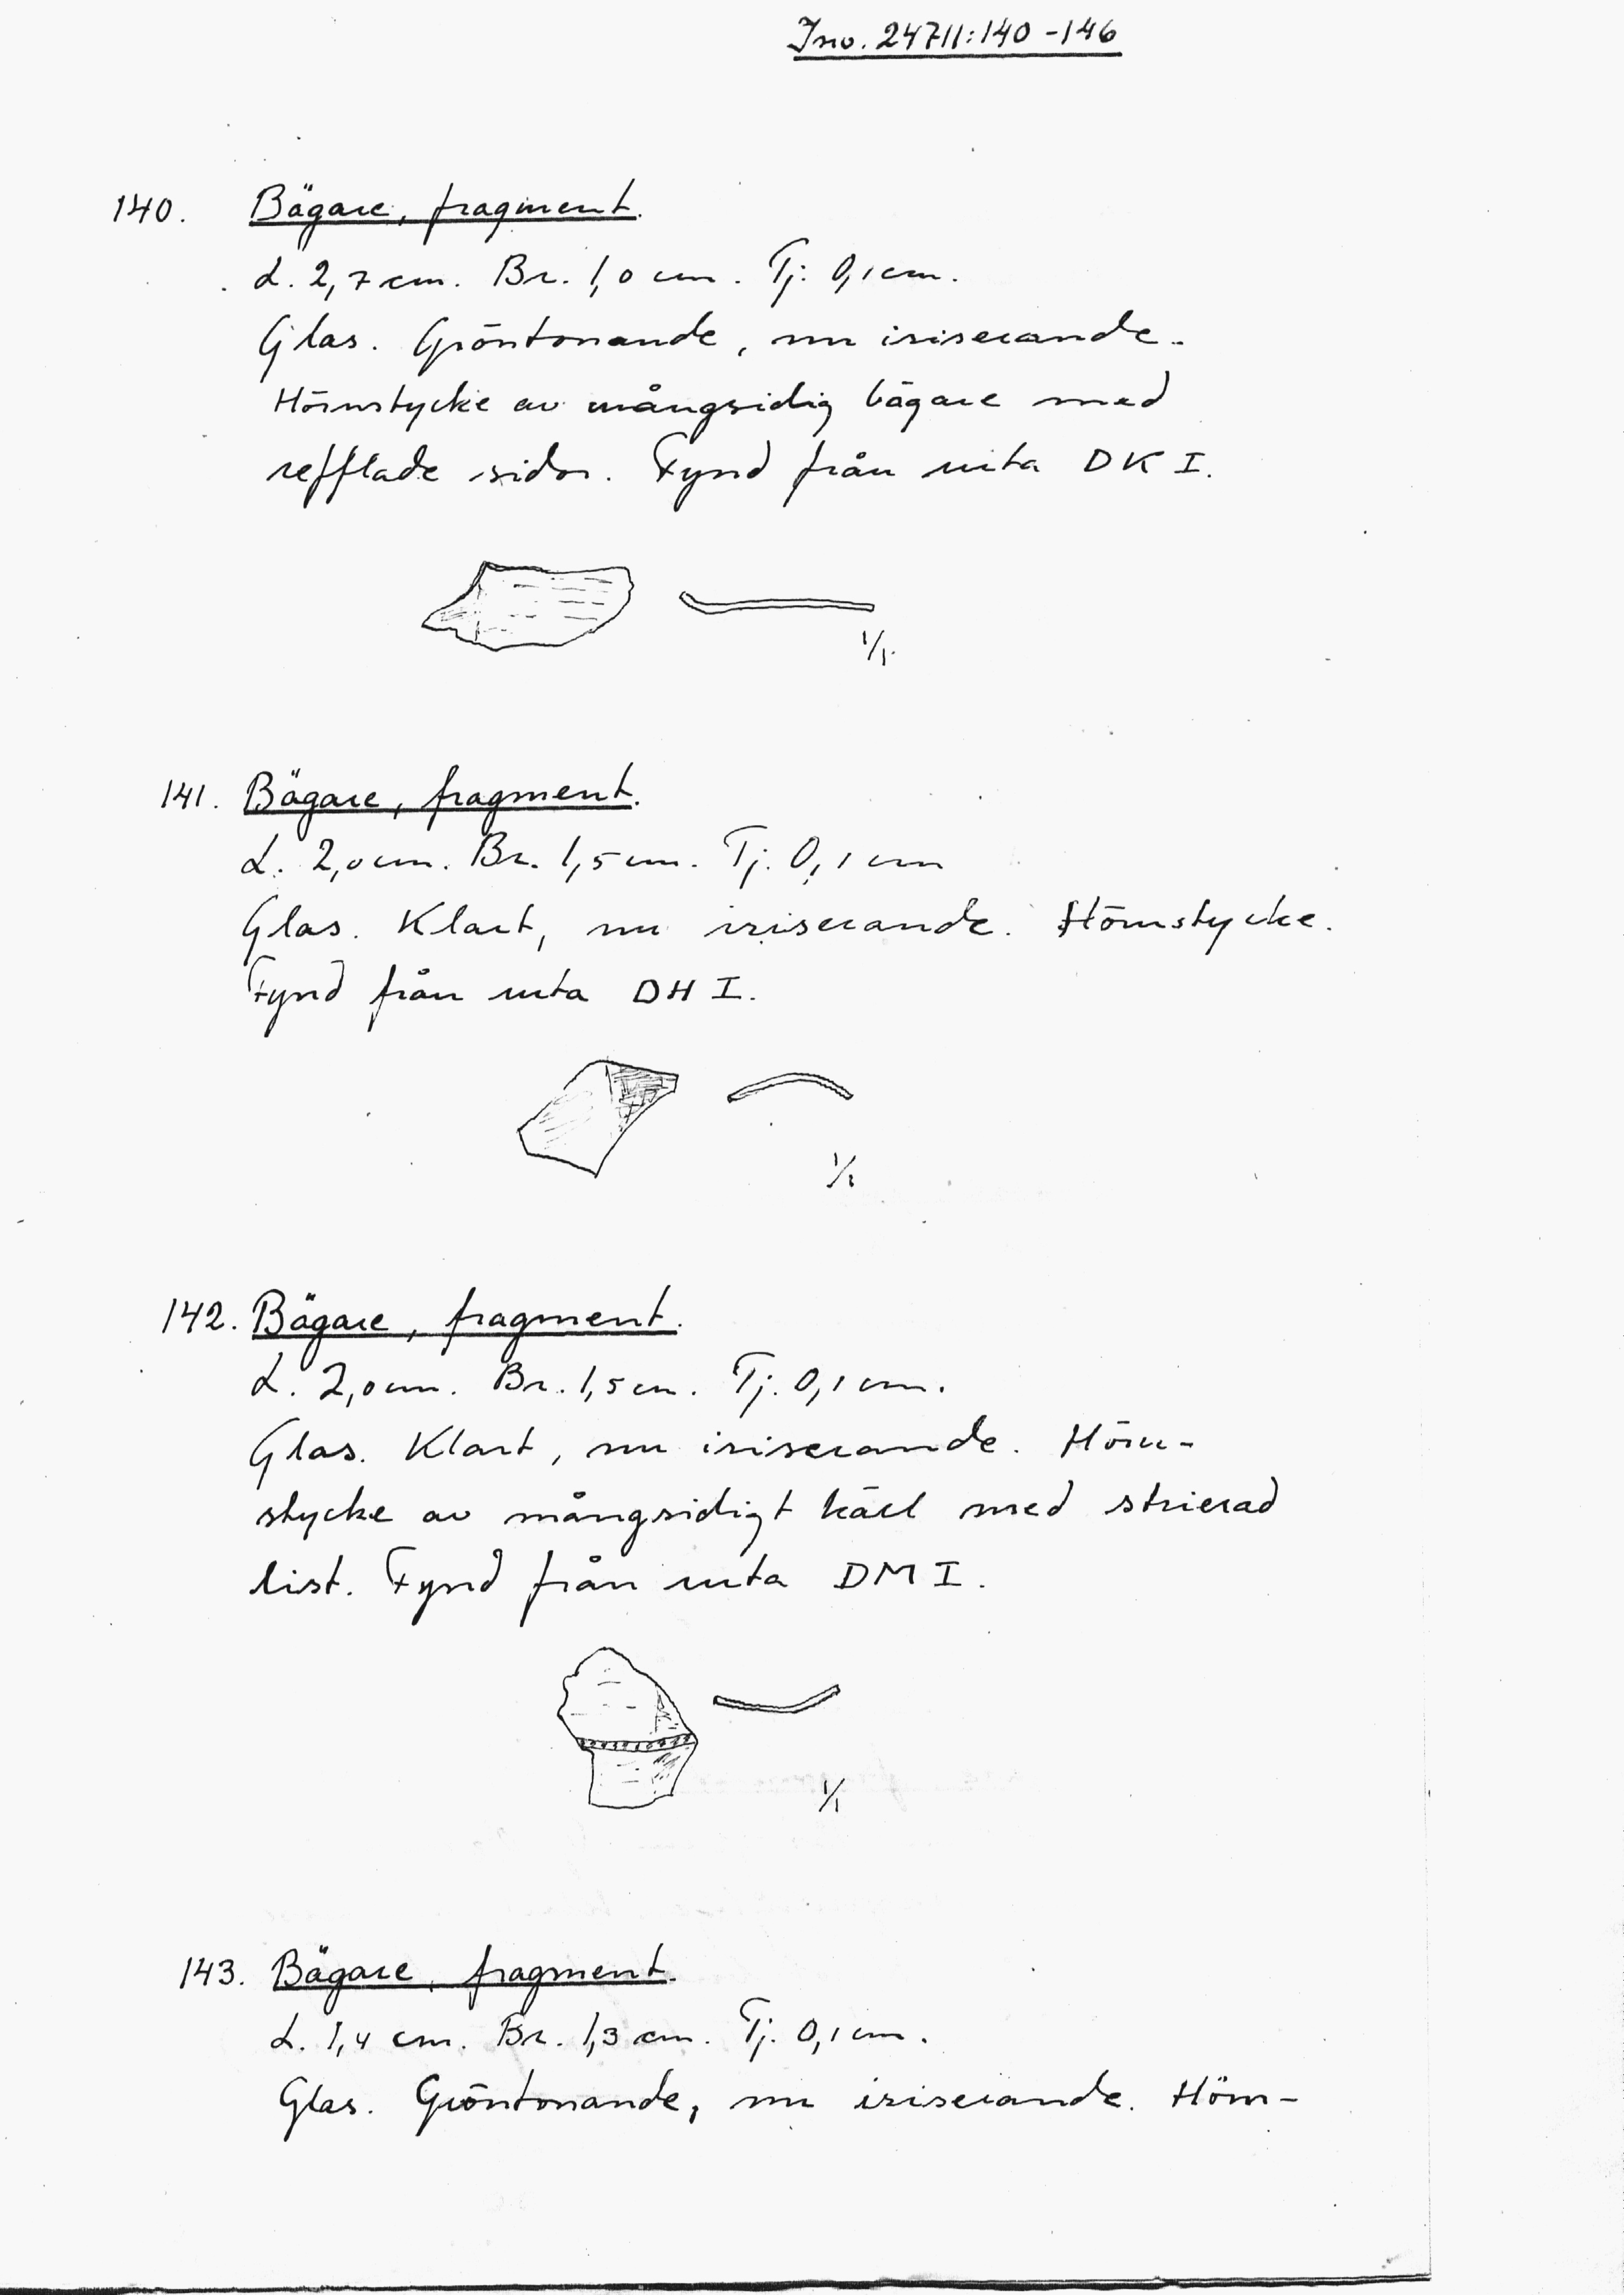 Inv. 24711:140-146
140. Bägare, fragment.
L. 2,7 cm. Br. 1,0 cm. Tj. 0,1 cm.
Glas. Gröntonande, nu iriserande.
Hörnstycke av mångsidig bägare med
refflade sidor. Fynd från ruta DK I.
1/1.
141. Bägare, fragment.
L. 2,0 cm. Br. 1,5 cm. Tj. 0,1 cm
Glas. Klart, nu iriserande. Hörnstycke.
Fynd från ruta DH I.
1/1
142. Bägare, fragment.
L. 2,0 cm. Br. 1,5 cm. Tj. 0,1 cm.
Glas. Klart, nu iriserande. Hörn-
stycke av mångsidigt kärl med strierad
list. Fynd från ruta DM I.
1/1
143. Bägare, fragment.
L. 1,4 cm. Br. 1,3 cm. Tj. 0,1 cm.
Glas. Gröntonande, nu iriserande. Hörn-